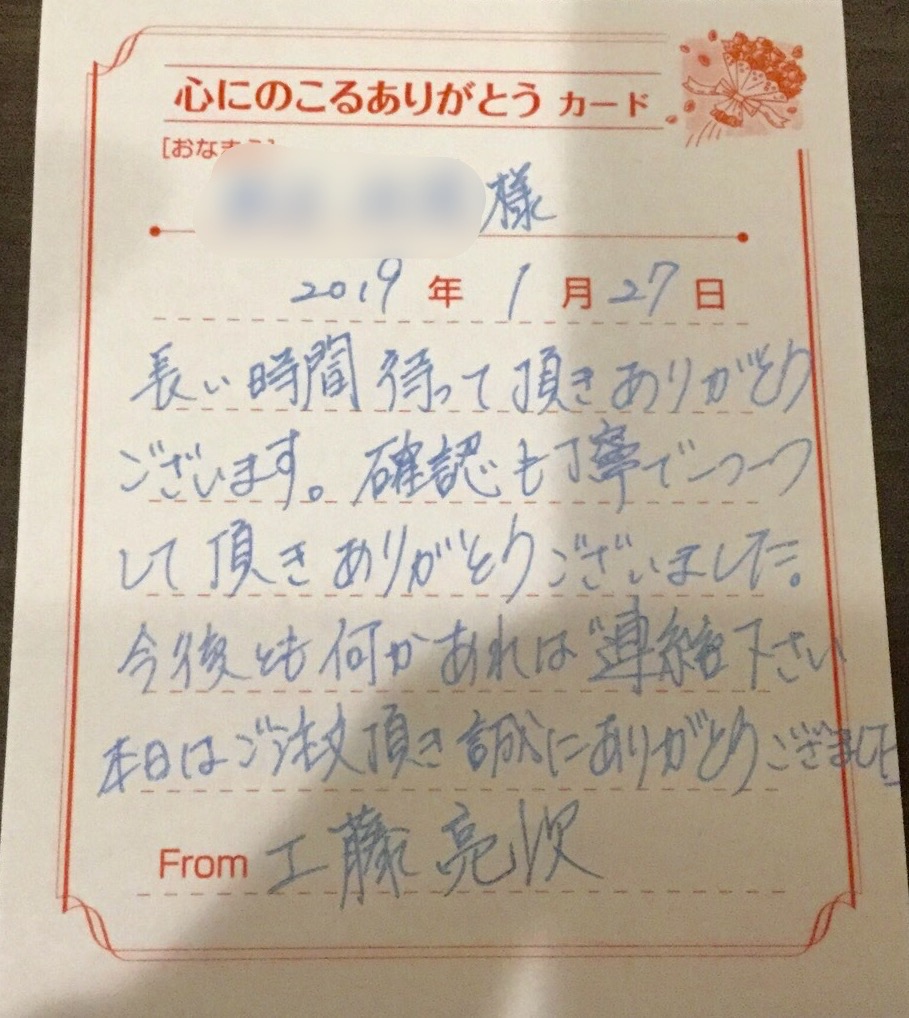 心にのこるありがとう カード
[おなまえ]
様
2019年1月27日
長い時間待って頂きありがとう
ございます。確認も丁寧で一つ一つ
して頂きありがとうございました。
今後とも何かあれば連絡下さい
本日はご注文頂き誠にありがとうございました
From 工藤亮次